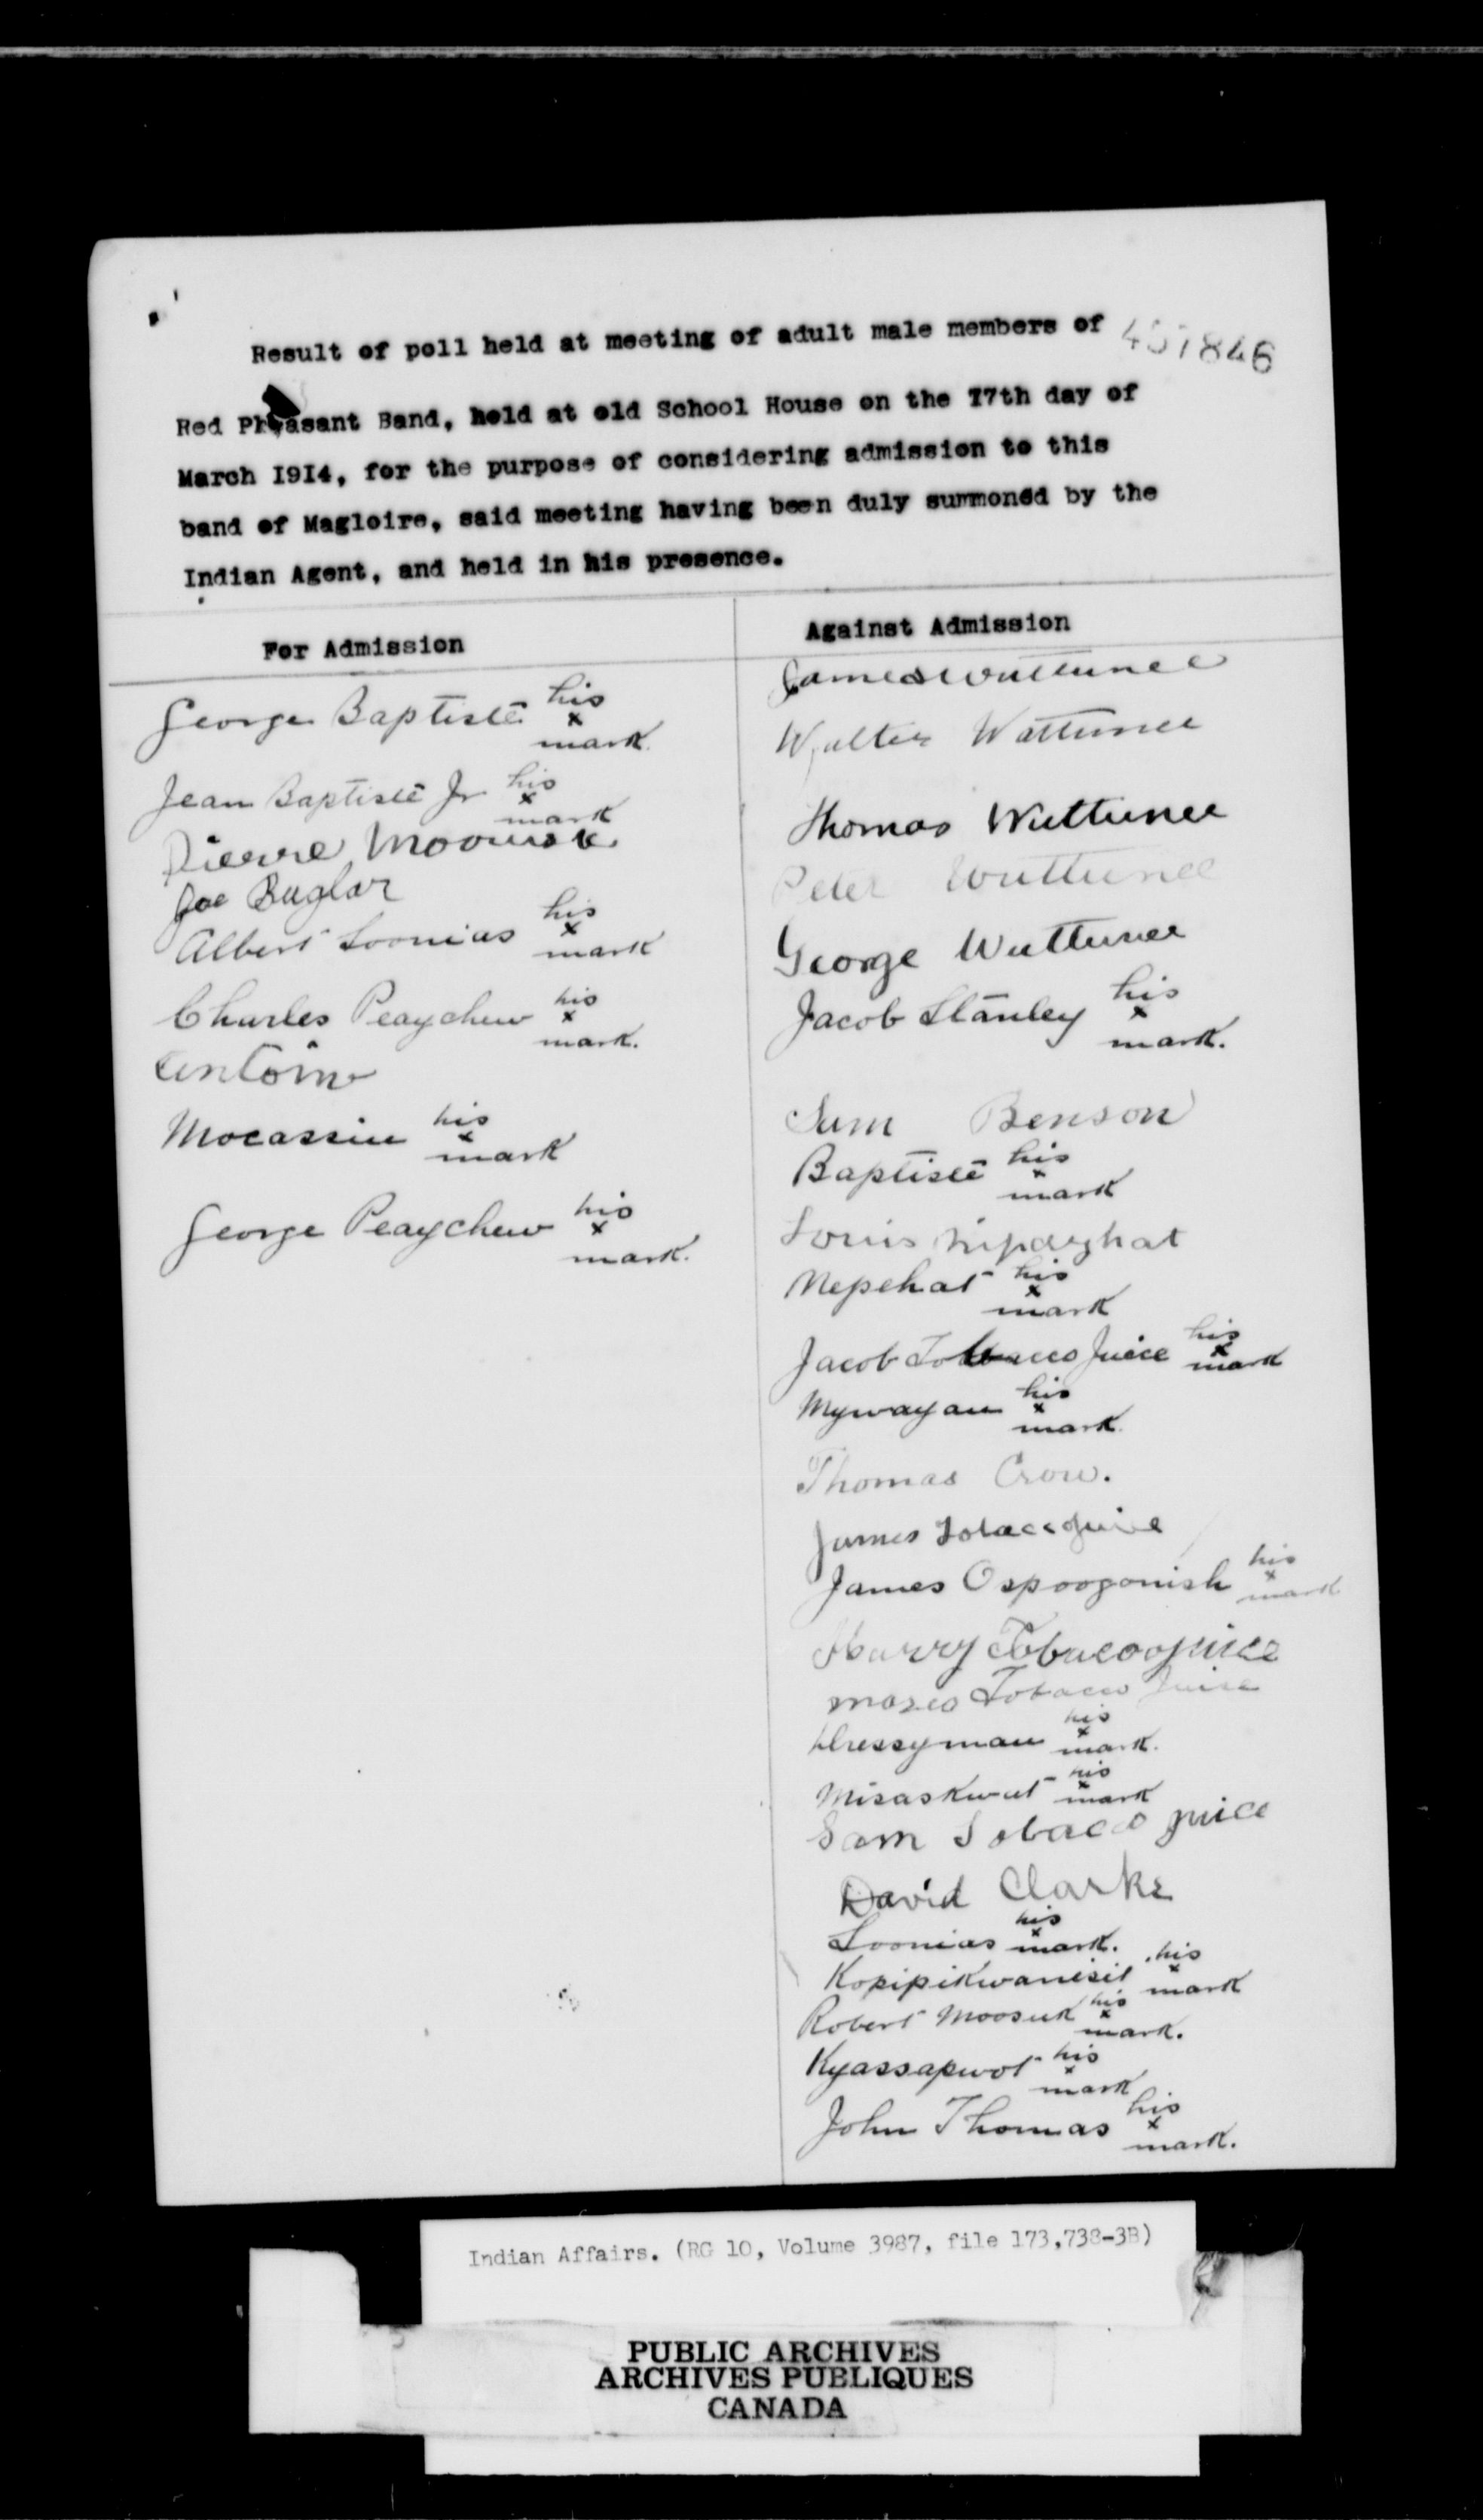 Result of poll held at meeting of adult male members of
Red Pheasant Band, held at old School House on the I7th day of
March I9I4, for the purpose of considering admission to this
band of Magloire, said meeting having been duly summoned by the
Indian Agent, and held in his presence.
For Admission
George Baptiste his x mark.
Jean Baptiste Jr his x mark
Pierre
Joe Buglar
Albert Soonias his x mark
Charles Peaychew his x mark.
Antoin
Mocassin his x mark
George Peaychew his x mark.
Against Admission
James Wuttunee
Walter Wattunee
Thomas Wuttunee
Peter Wuttunee
George Wuttunee
Jacob Stanley his x mark.
Sam Benson
Baptiste his x mark
Louis
Nepehat his x mark
Jacob Tobacco Juice his x mark
Mywayan his x mark.
Thomas Crow.
James
James Ospoogonish his x mark
Harry Tobacoojuice
Tobacco Juice
Dressyman his x mark.
Misaskwat his x mark
Sam Tobacco juice
David Clarke
Soonias his x mark.
Kopipikwanisit his x mark
Robert Moosuk his x mark.
Kyassapwot his x mark
John Thomas his x mark.
Indian Affairs. (RG 10, Volume 3987, file 173,738-3B)
PUBLIC ARCHIVES
ARCHIVES PUBLIQUES
CANADA